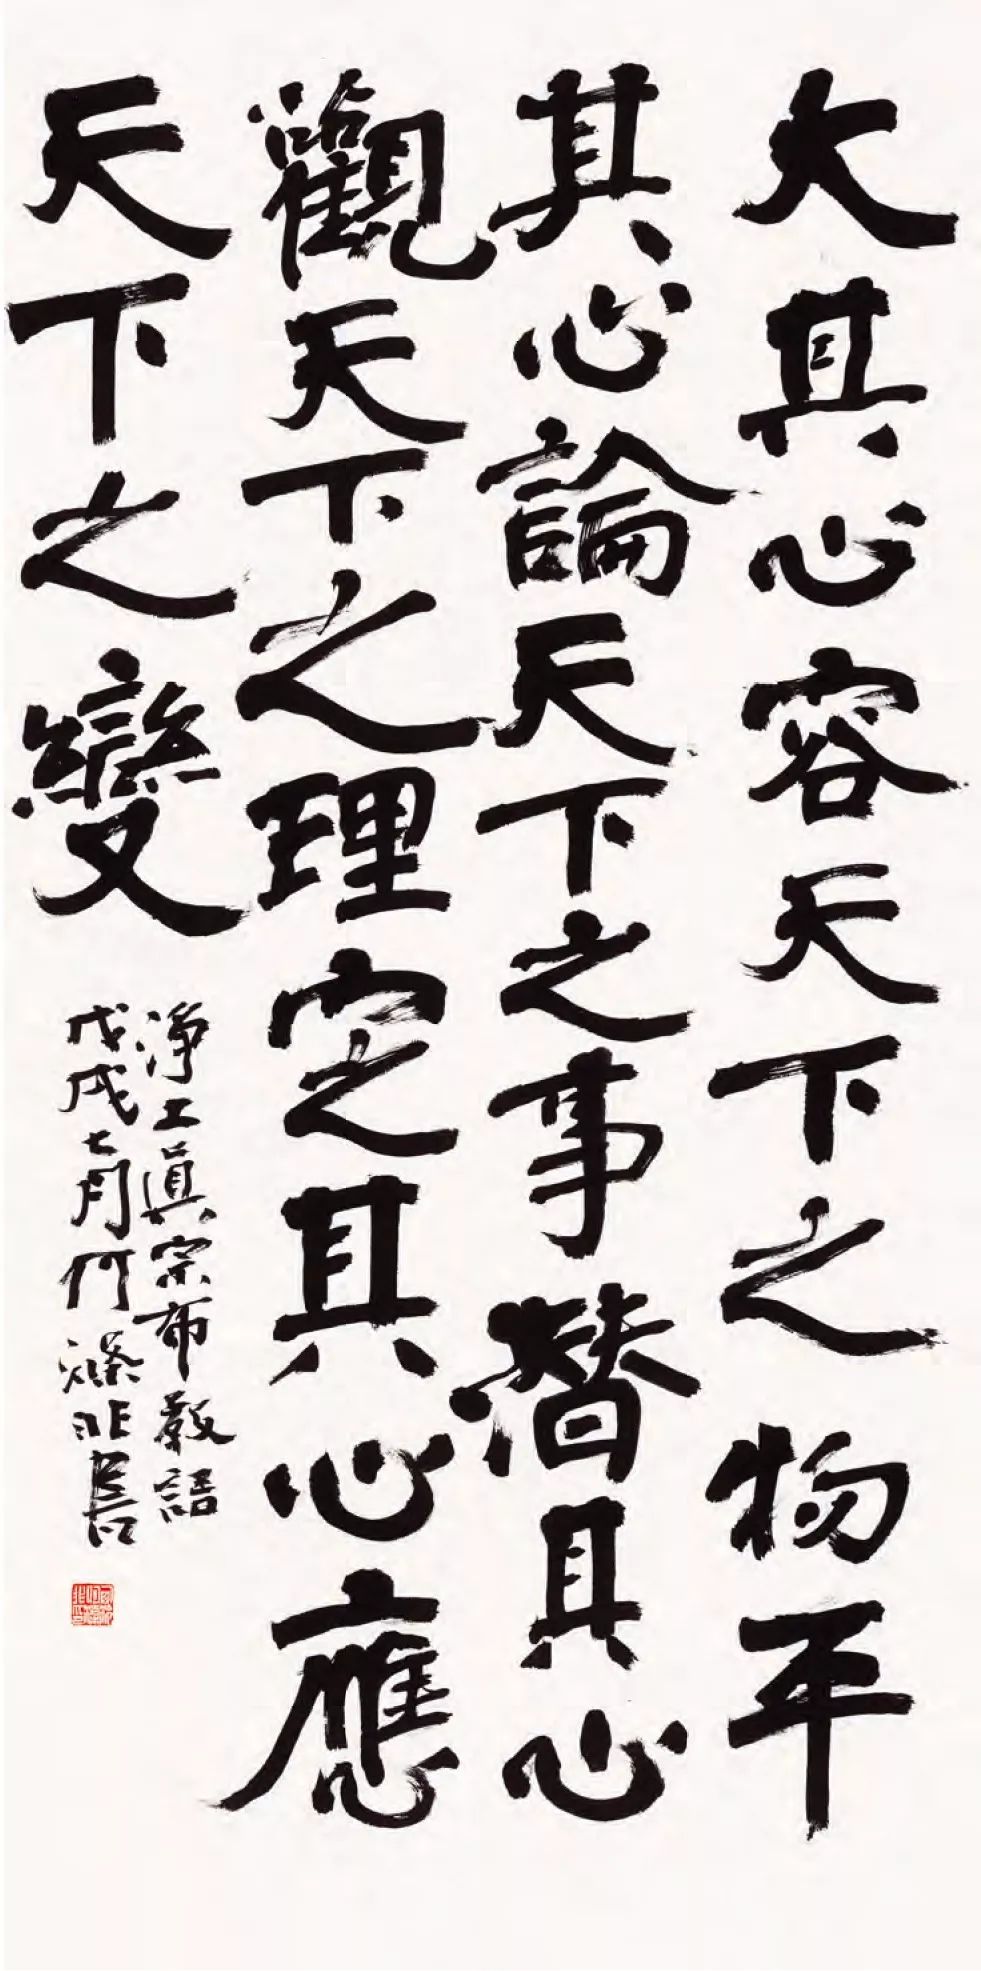 大其心容天下之物平
其心論天下之事潜其心
觀天下之理定其心應
天下之變
淨土真宗布教語
戊戌七月何滌非書